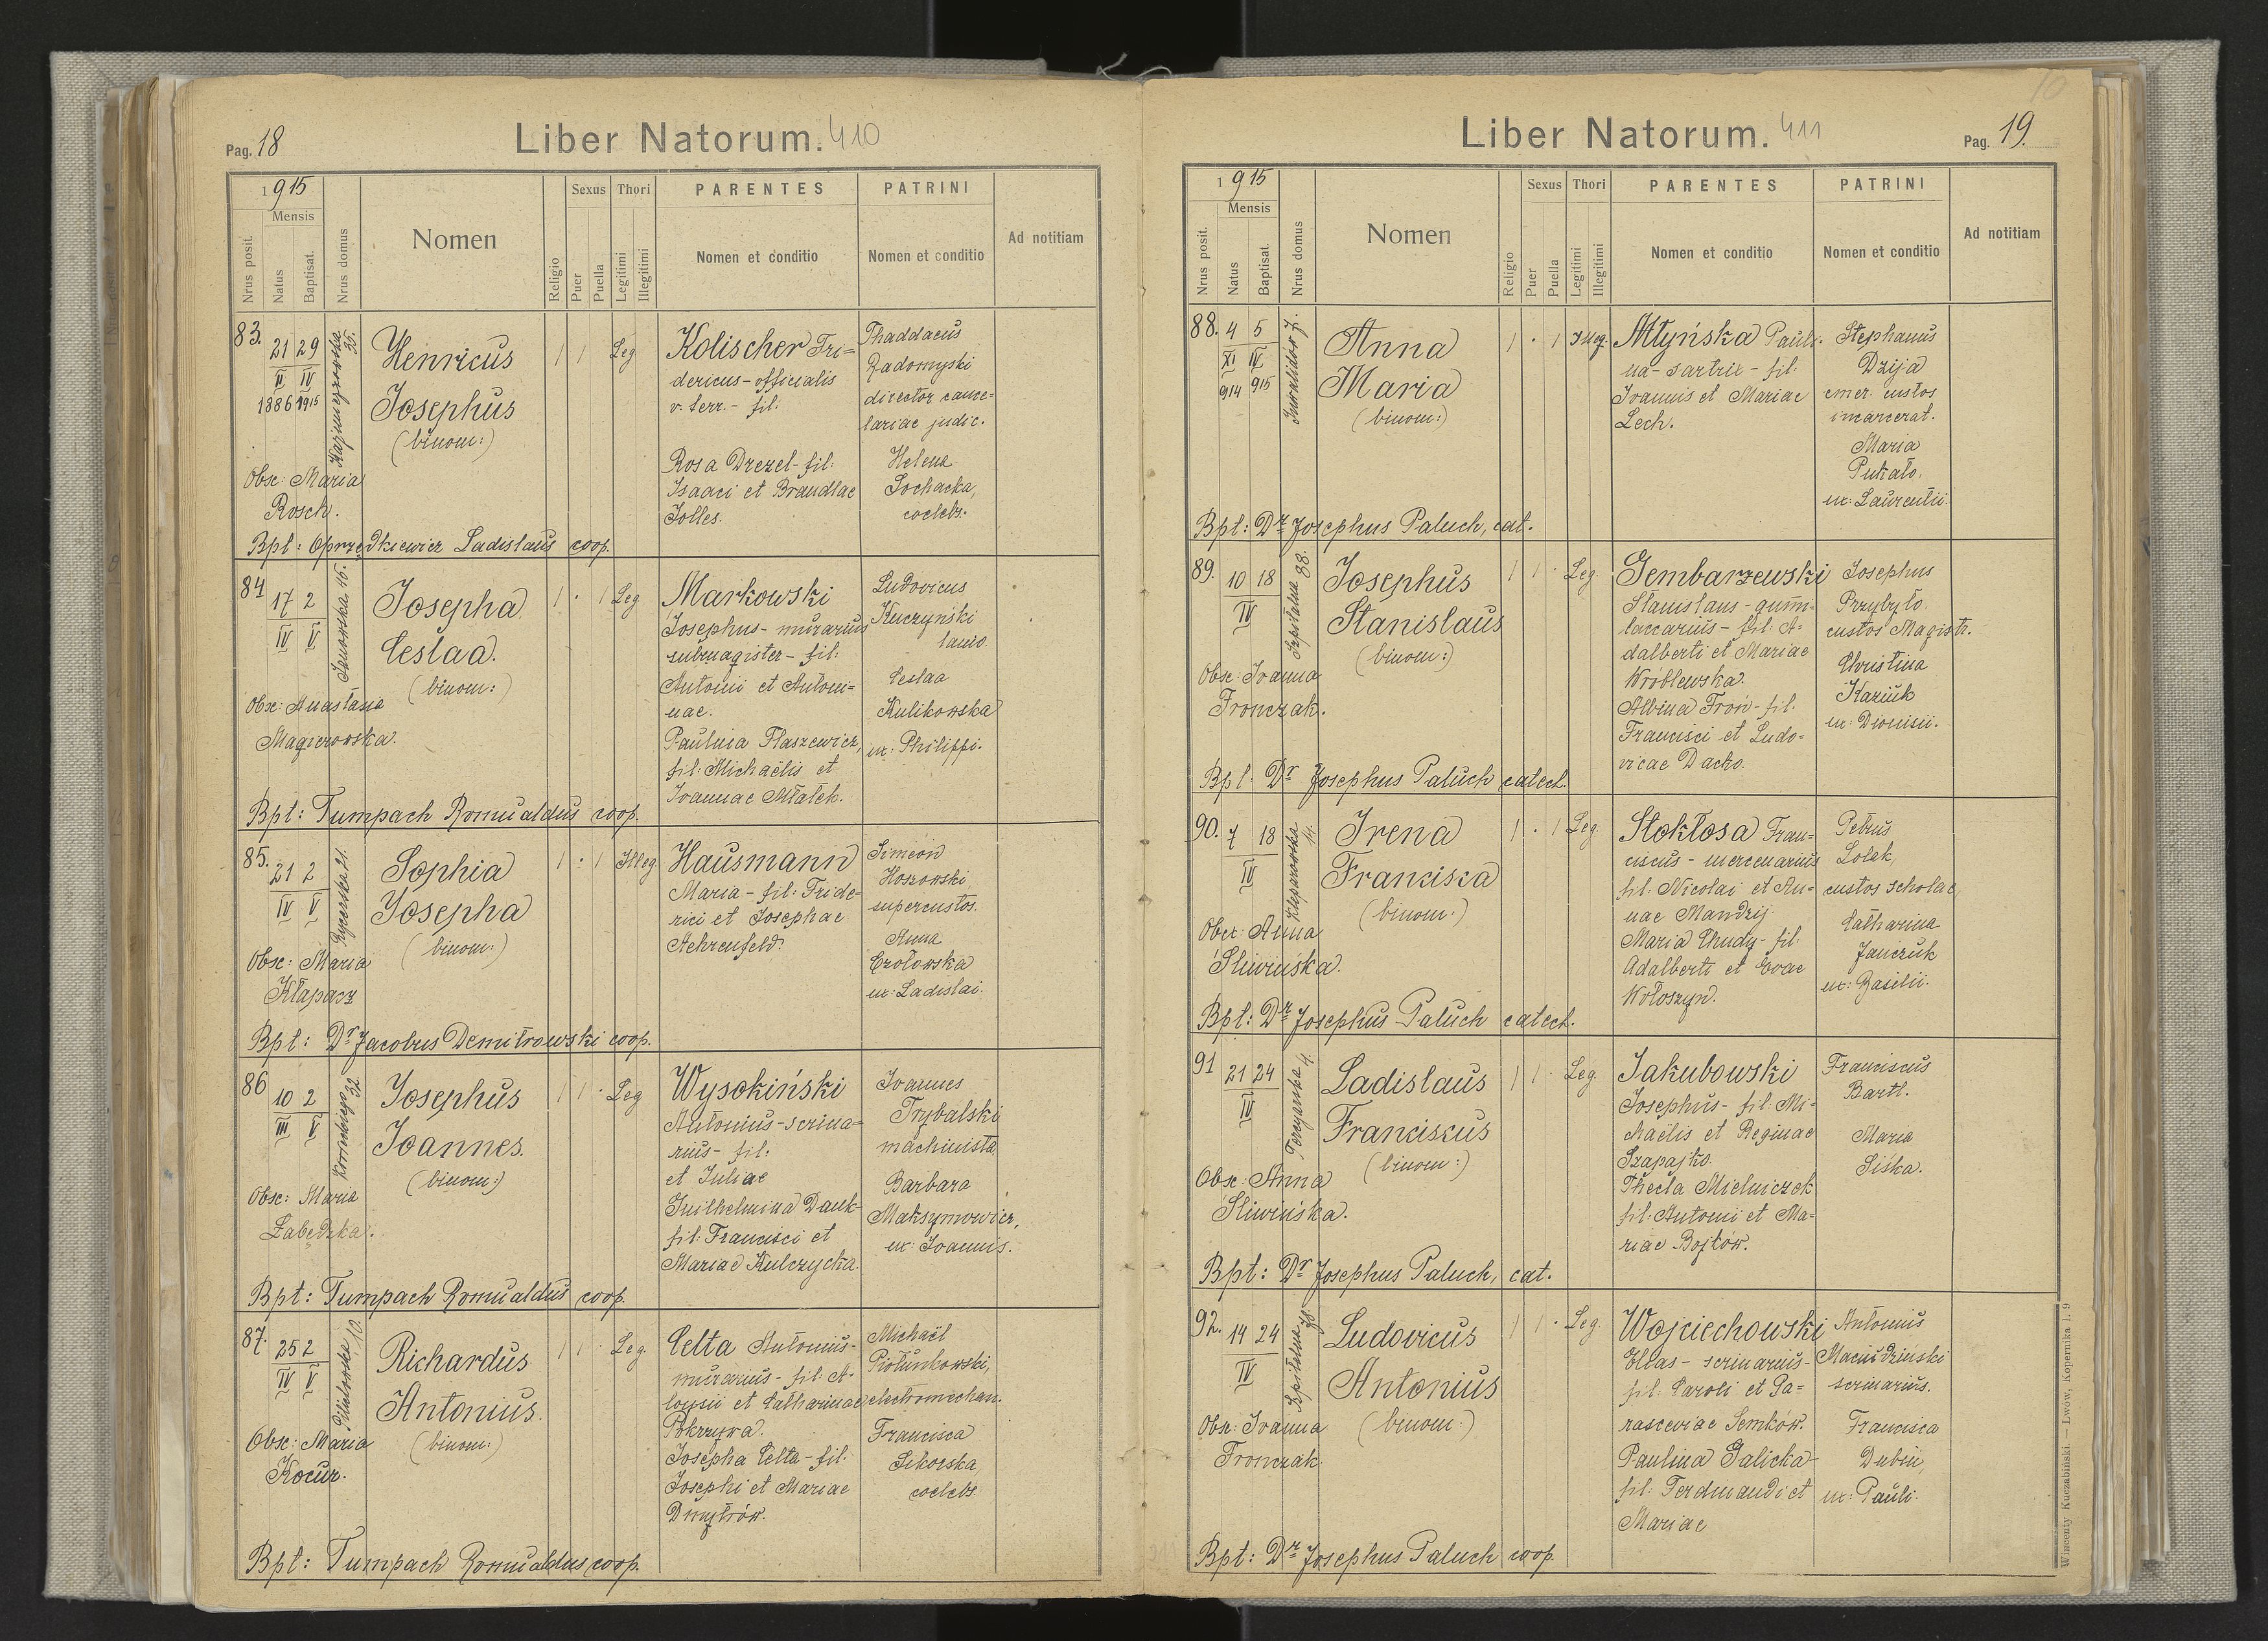 Pag. 18
Liber Natorum. 410
1915
Mensis
Nrus posit.
Natus
Baptisat.
Nrus domus
Nomen
Religio
Sexus
Puer
Puella
Thori
Legitimi
Illegitimi
PARENTES
Nomen et conditio
PATRINI
Nomen et conditio
Ad notitiam
83.
21 29
II IV
1886 1915
35.
Henricus
Josephus
(binom:)
1 1 Leg
Kolischer Fri=
dericus - officialis
v. ferr. - fil:
Rosa Drezel - fil:
Isaaci et Brandlae
Jolles.
Thaddaeus
Radomyski
director cance=
lariae judic.
Helena
Sochacka,
coelebs.
Obsc: Maria
Rosch.
Bpt: Oprzędkiewicz Ladislaus coop.
84
17 2
IV V
Janowska 46.
Josepha
Ceslaa.
(binom:)
1 . 1 Leg
Markowski
Josephus - murarius
submagister - fil:
Antonii et Antoni=
nae.
Paulina Flaszewicz,
fil: Michaëlis et
Joannae Młatek.
Ludovicus
Kuczyński
lanio.
Ceslaa
Kulikowska
ux: Philippi.
Obsc: Anastasia
Magierowska.
Bpt: Tumpach Romualdus coop.
85.
21 2
IV V
Rycerska 21.
Sophia
Josepha
(binom:)
1 . 1 Illeg
Hausmann
Maria - fil: Fride=
rici et Josephae
Aehrenfeld.
Simeon
Hoszowski
supercustos.
Anna
Czołowska
ux: Ladislai.
Obsc: Maria
Kłapacz
Bpt: Dr Jacobus Demitrowski coop.
86
10 2
III V
32.
Josephus
Joannes.
(binom:)
1 1 . Leg
Wysokiński
Antonius - scrina=
rius - fil:
et Juliae
Guilhelmina Dauk-
fil: Francisci et
Mariae Kulczycka.
Joannes
Trybalski
machinista
Barbara
Maksymowicz,
ux: Joannis.
Obsc: Maria
Łabędzka.
Bpt: Tumpach Romualdus coop.
87.
25 2
IV V
10.
Richardus
Antonius.
(binom:)
1 1 . Leg
Celta Antonius-
murarius - fil: A-
loysii et Catharinae
Pokrzywa.
Josepha Celta - fil:
Josephi et Mariae
Dmytrów.
Michaël
Piołunkowski,
electromechan.
Francisca
Sikorska
coelebs.
Obsc: Maria
Kocur.
Bpt: Tumpach Romualdus coop.
Liber Natorum. 411
Pag. 19.
1915
Mensis
Nrus posit.
Natus
Baptisat.
Nrus domus
Nomen
Religio
Sexus
Puer
Puella
Thori
Legitimi
Illegitimi
PARENTES
Nomen et conditio
PATRINI
Nomen et conditio
Ad notitiam
88.
4 5
XI IV
914 915
Inwalidów 7.
Anna
Maria
(binom:)
1 . 1 Illeg.
Młyńska Pauli=
na - sartrix - fil:
Joannis et Mariae
Lech.
Stephanus
Dzija
emer. custos
incarcerat.
Maria
Pukało,
ux: Laurentii.
Bpt: Dr Josephus Paluch, cat.
89.
10 18
IV
Szpitalna 88.
Josephus
Stanislaus
(binom:)
1 1 . Leg.
Gembarzewski
Stanislaus - gummi=
laccarius - fil: A-
dalberti et Mariae
Wróblewska.
Albina Froń - fil:
Francisci et Ludo=
vicae Dacko.
Josephus
Przybyło
custos Magistr.
Christina
Kaziuk
ux: Dionisii.
Obsc: Joanna
Fronczak.
Bpt. Dr Josephus Paluch catech.
90.
7 18
IV
Kleparowska 14.
Irena
Francisca
(binom:)
1 . 1 Leg.
Stokłosa Fran=
ciscus - mercenarius
fil: Nicolai et An=
nae Mandzij.
Maria Chudy - fil:
Adalberti et Evae
Wołoszyn.
Petrus
Lolak,
custos scholae
Catharina
Janczuk
ux: Basilii.
Obst: Anna
Śliwińska.
Bpt: Dr Josephus Paluch catech.
91
21 24
IV
4.
Ladislaus
Franciscus
(binom:)
1 1 . Leg.
Jakubowski
Josephus - fil: Mi=
chaëlis et Reginae
Szapajko.
Thecla Mielniczek
fil: Antonii et Ma=
riae Bojków.
Franciscus
Bartl.
Maria
Siška.
Obsc: Anna
Śliwińska.
Bpt: Dr Josephus Paluch, cat.
92.
14 24
IV
Szpitalna
Ludovicus
Antonius
(binom:)
1 1 . Leg.
Wojciechowski
Elias - scrinarius-
fil: Caroli et Pa=
rasceviae Semków.
Paulina Galicka-
fil: Ferdinandi et
Mariae
Antonius
Maciudziński
scrinarius.
Francisca
Dubiu,
ux: Pauli.
Obsc: Joanna
Fronczak.
Bpt: Dr Josephus Paluch coop.
Wincenty Kuczabiński. — Lwów, Kopernika l. 9